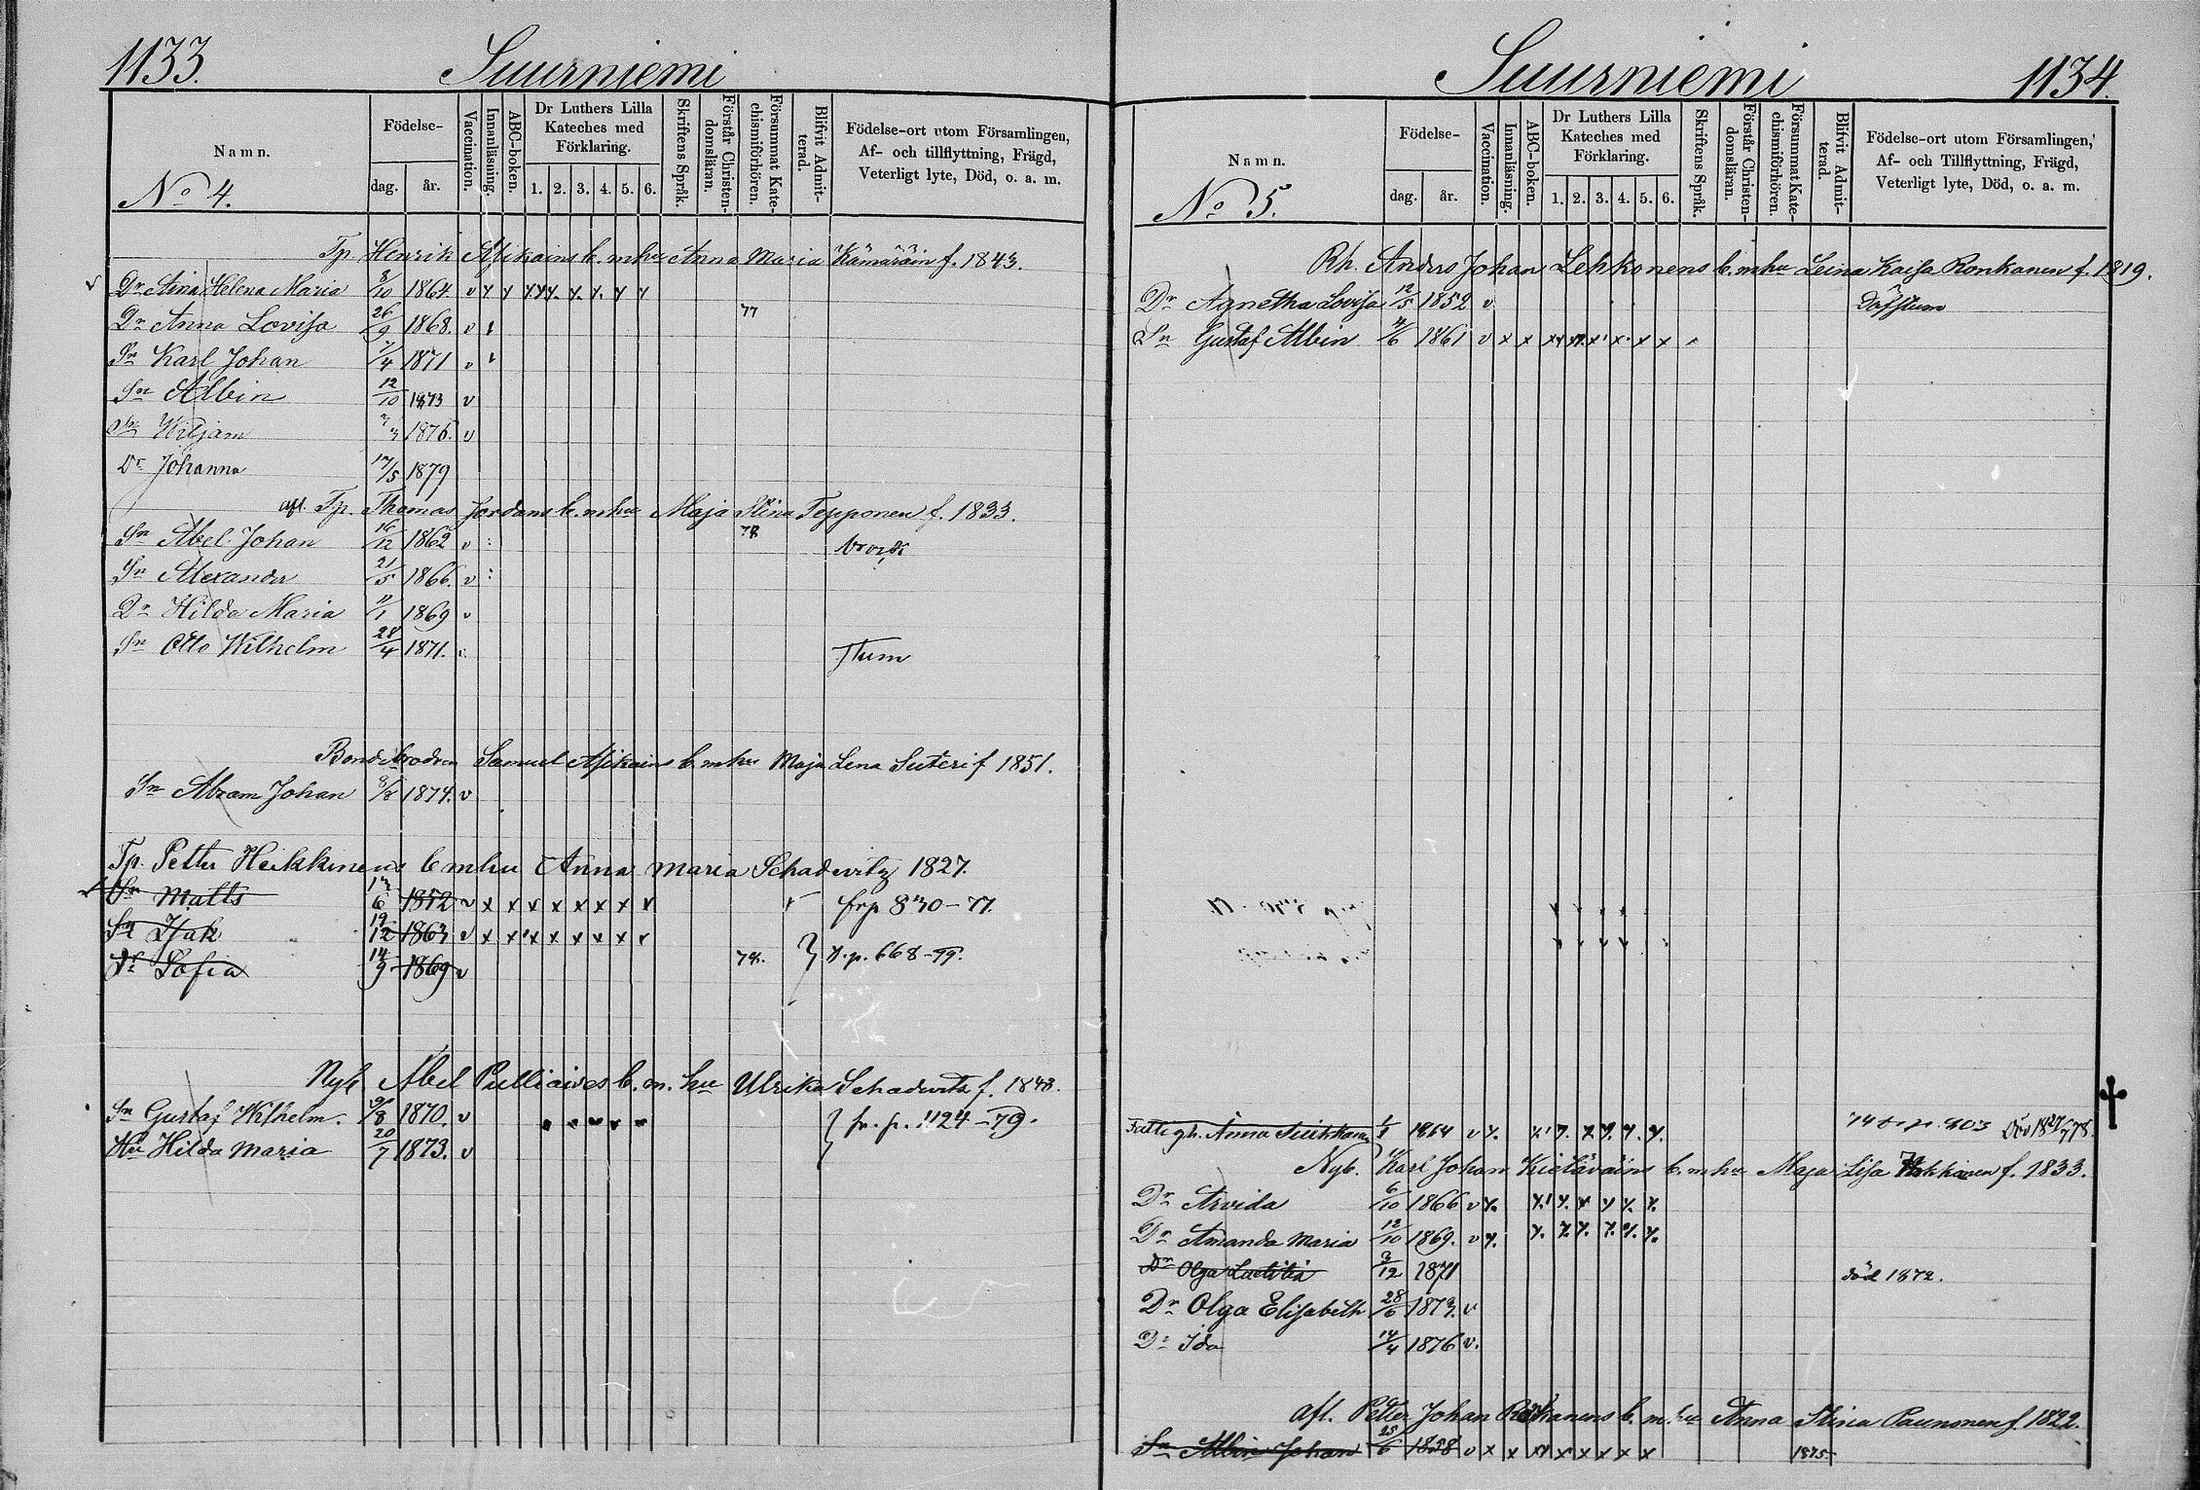 1133.
Suurniemi
Namn.
Födelse-
dag.
år.
Vaccination.
Innanläsning.
ABC-boken.
Dr Luthers Lilla Kateches med Förklaring.
1. 2. 3. 4. 5. 6.
Skriftens Språk.
Förstår Christendomsläran.
Försummat Katechismiförhören.
Blifvit Admitterad.
Födelse-ort utom Församlingen,
Af- och tillflyttning, Frägd,
Veterligt lyte, Död, o. a. m.
No 4.
Tp. Henrik Asikains b. m hu Anna Maria Kämäräin f. 1843.
Dr Aina Helena Maria 8/10 1864 v
Dr Anna Lovisa 26/9 1868. v 77
Sn Karl Johan 1/4 1871 v
Sn Albin 12/10 1873 v
Sn Wiljam 1876. v
Dr Johanna 17/5 1879
afl. Tp. Thomas Jordans b. m hu Maja Stina Tepponen f. 1833.
Sn Abel Johan 16/12 1862 v 78
Sn Alexander 21/5 1866. v
Dr Hilda Maria 11/1 1869 v
Sn Otto Wilhelm 28/4 1871. Stum
Bondebrodren Samuel Asikains b. m hu Maja Lena Suteri f 1851.
Sn Abram Johan 8/8 1874. v
Tp. Petter Heikkinens b m hu Anna Maria Schadevitz 1827.
Sn Matts 6 1852 v x x x x x x x x frp 830-77.
Sn Isak 19/12 1863 v x x x x x x x x
Dr Sofia 14/9 1869 v 78. } x. p. 668-79.
Nyb Abel Pulliaises b. m. hu Ulrika Schadevitz f. 1848.
Sn Gustaf Wilhelm. 1870. v } fr. p. 1124-79.
Hilda Maria 20/7 1873. v
Suurniemi
1134.
Namn.
Födelse-
dag.
år.
Vaccination.
Innanläsning.
ABC-boken.
Dr Luthers Lilla Kateches med Förklaring.
1. 2. 3. 4. 5. 6.
Skriftens Språk.
Förstår Christendomsläran.
Försummat Katechismiförhören.
Blifvit Admitterad.
Födelse-ort utom Församlingen,
Af- och Tillflyttning, Frägd,
Veterligt lyte, Död, o. a. m.
No 5.
Rh. Anders Johan Lehkonens b. m hu Leina Kaisa Ronkanen f. 1819.
Dr Agnetha Lovisa 12/5 1852 v Döfstum
Sn Gustaf Albin 4/6 1861 v x x x x x x x x
Fattigh. Anna 1/1 1864 v x. 74 p. 803 Död 18 27/7 78.
Nyb. Karl Johan Kietäväins b. m hu Maja Lisa f. 1833.
Dr Arvida 6/10 1866 v x.
Dr Amanda Maria 12/10 1869. v x.
Dr Olga Laetitia 3/12 1871 död 1872.
Dr Olga Elisabeth 28/6 1873. v
Dr Ida 14/4 1876 v.
afl. Petter Johan b. m. hu Anna Stina Paunonen f. 1822.
Sn Albin Johan 25/6 1858 v x x x x x x x x 1875